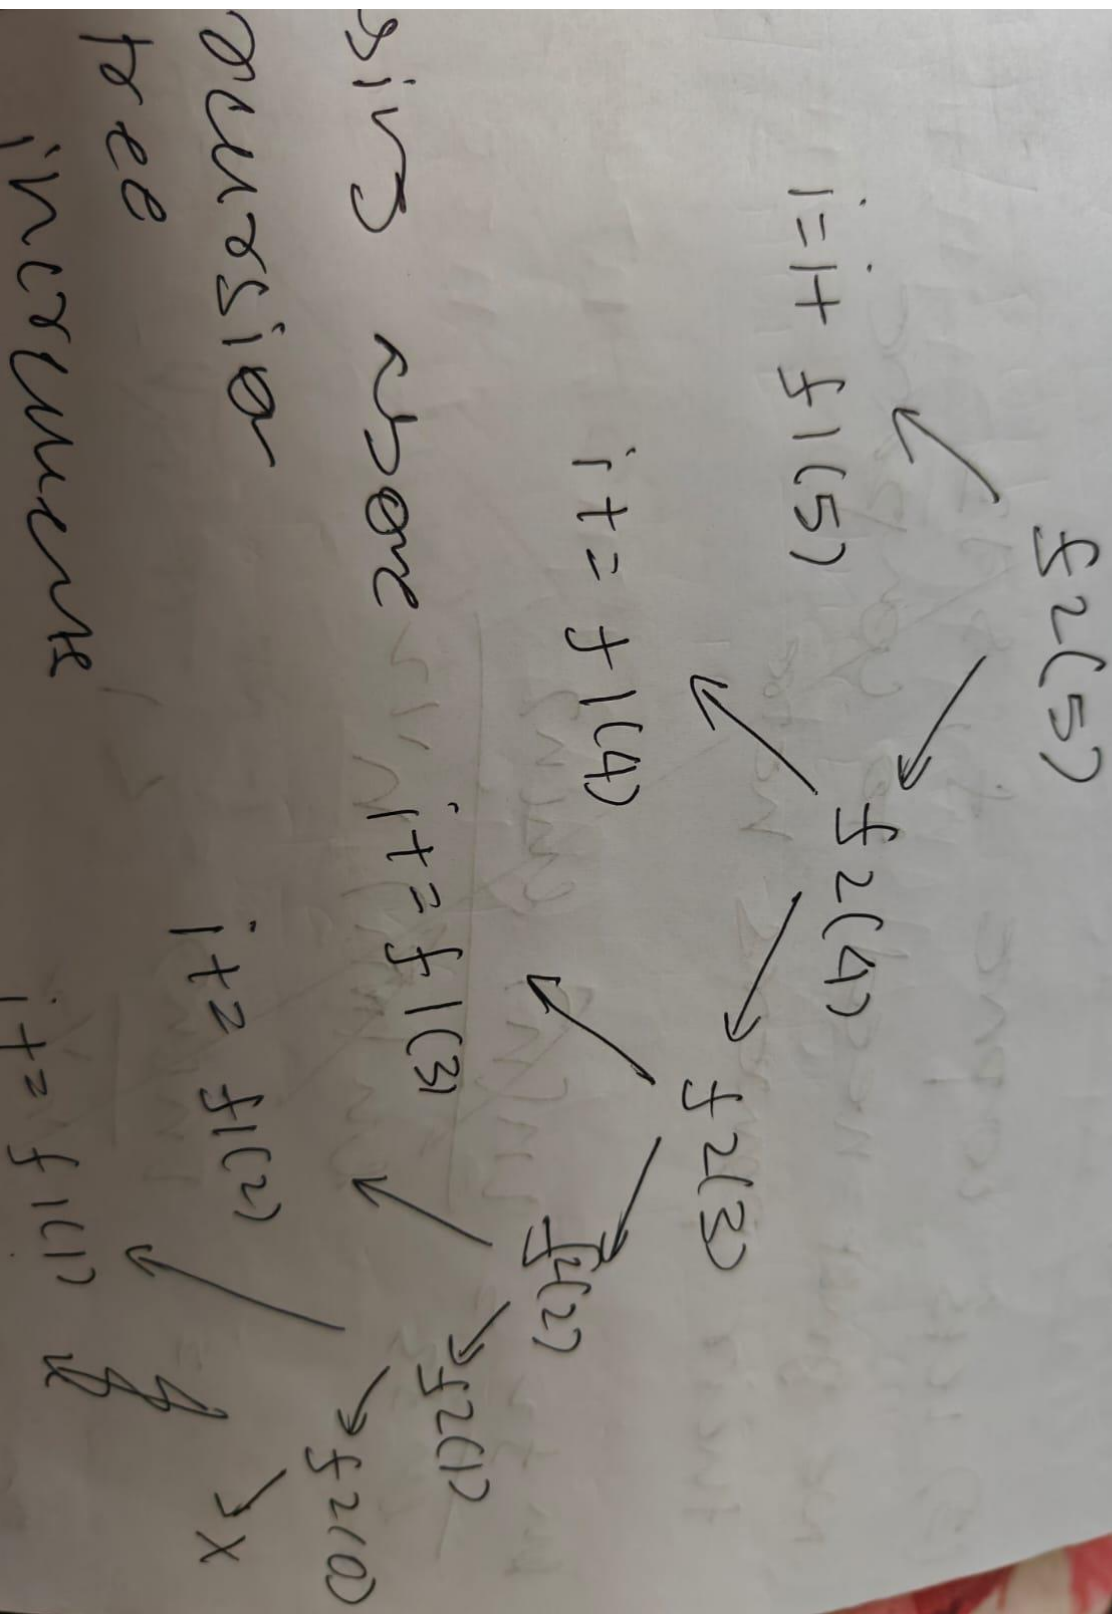 f2(5)
i=1+ f1(5)
f2(4)
i+= f1(4)
f2(3)
i+= f1(3)
f2(2)
i+= f1(2)
f2(1)
i+= f1(1)
f2(0)
x
sing above
recursion
tree
increments